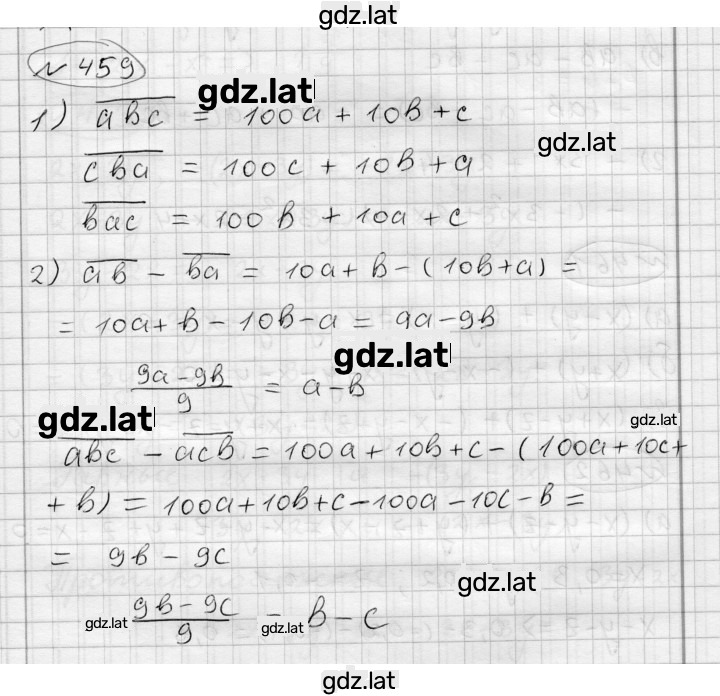 gdz.lat
№ 459
gdz.lat
1) a̅b̅c̅ = 100a + 10b + c
gdz.lat
c̅b̅a̅ = 100c + 10b + a
b̅a̅c̅ = 100b + 10a + c
2) a̅b̅ - b̅a̅ = 10a + b - (10b + a) =
= 10a + b - 10b - a = 9a - 9b
gdz.lat
(9a - 9b)/9 = a - b
gdz.lat
gdz.lat
a̅b̅c̅ - a̅c̅b̅ = 100a + 10b + c - (100a + 10c +
+ b) = 100a + 10b + c - 100a - 10c - b =
= 9b - 9c
gdz.lat
gdz.lat (9b - 9c)/9 = b - c
gdz.lat
gdz.lat